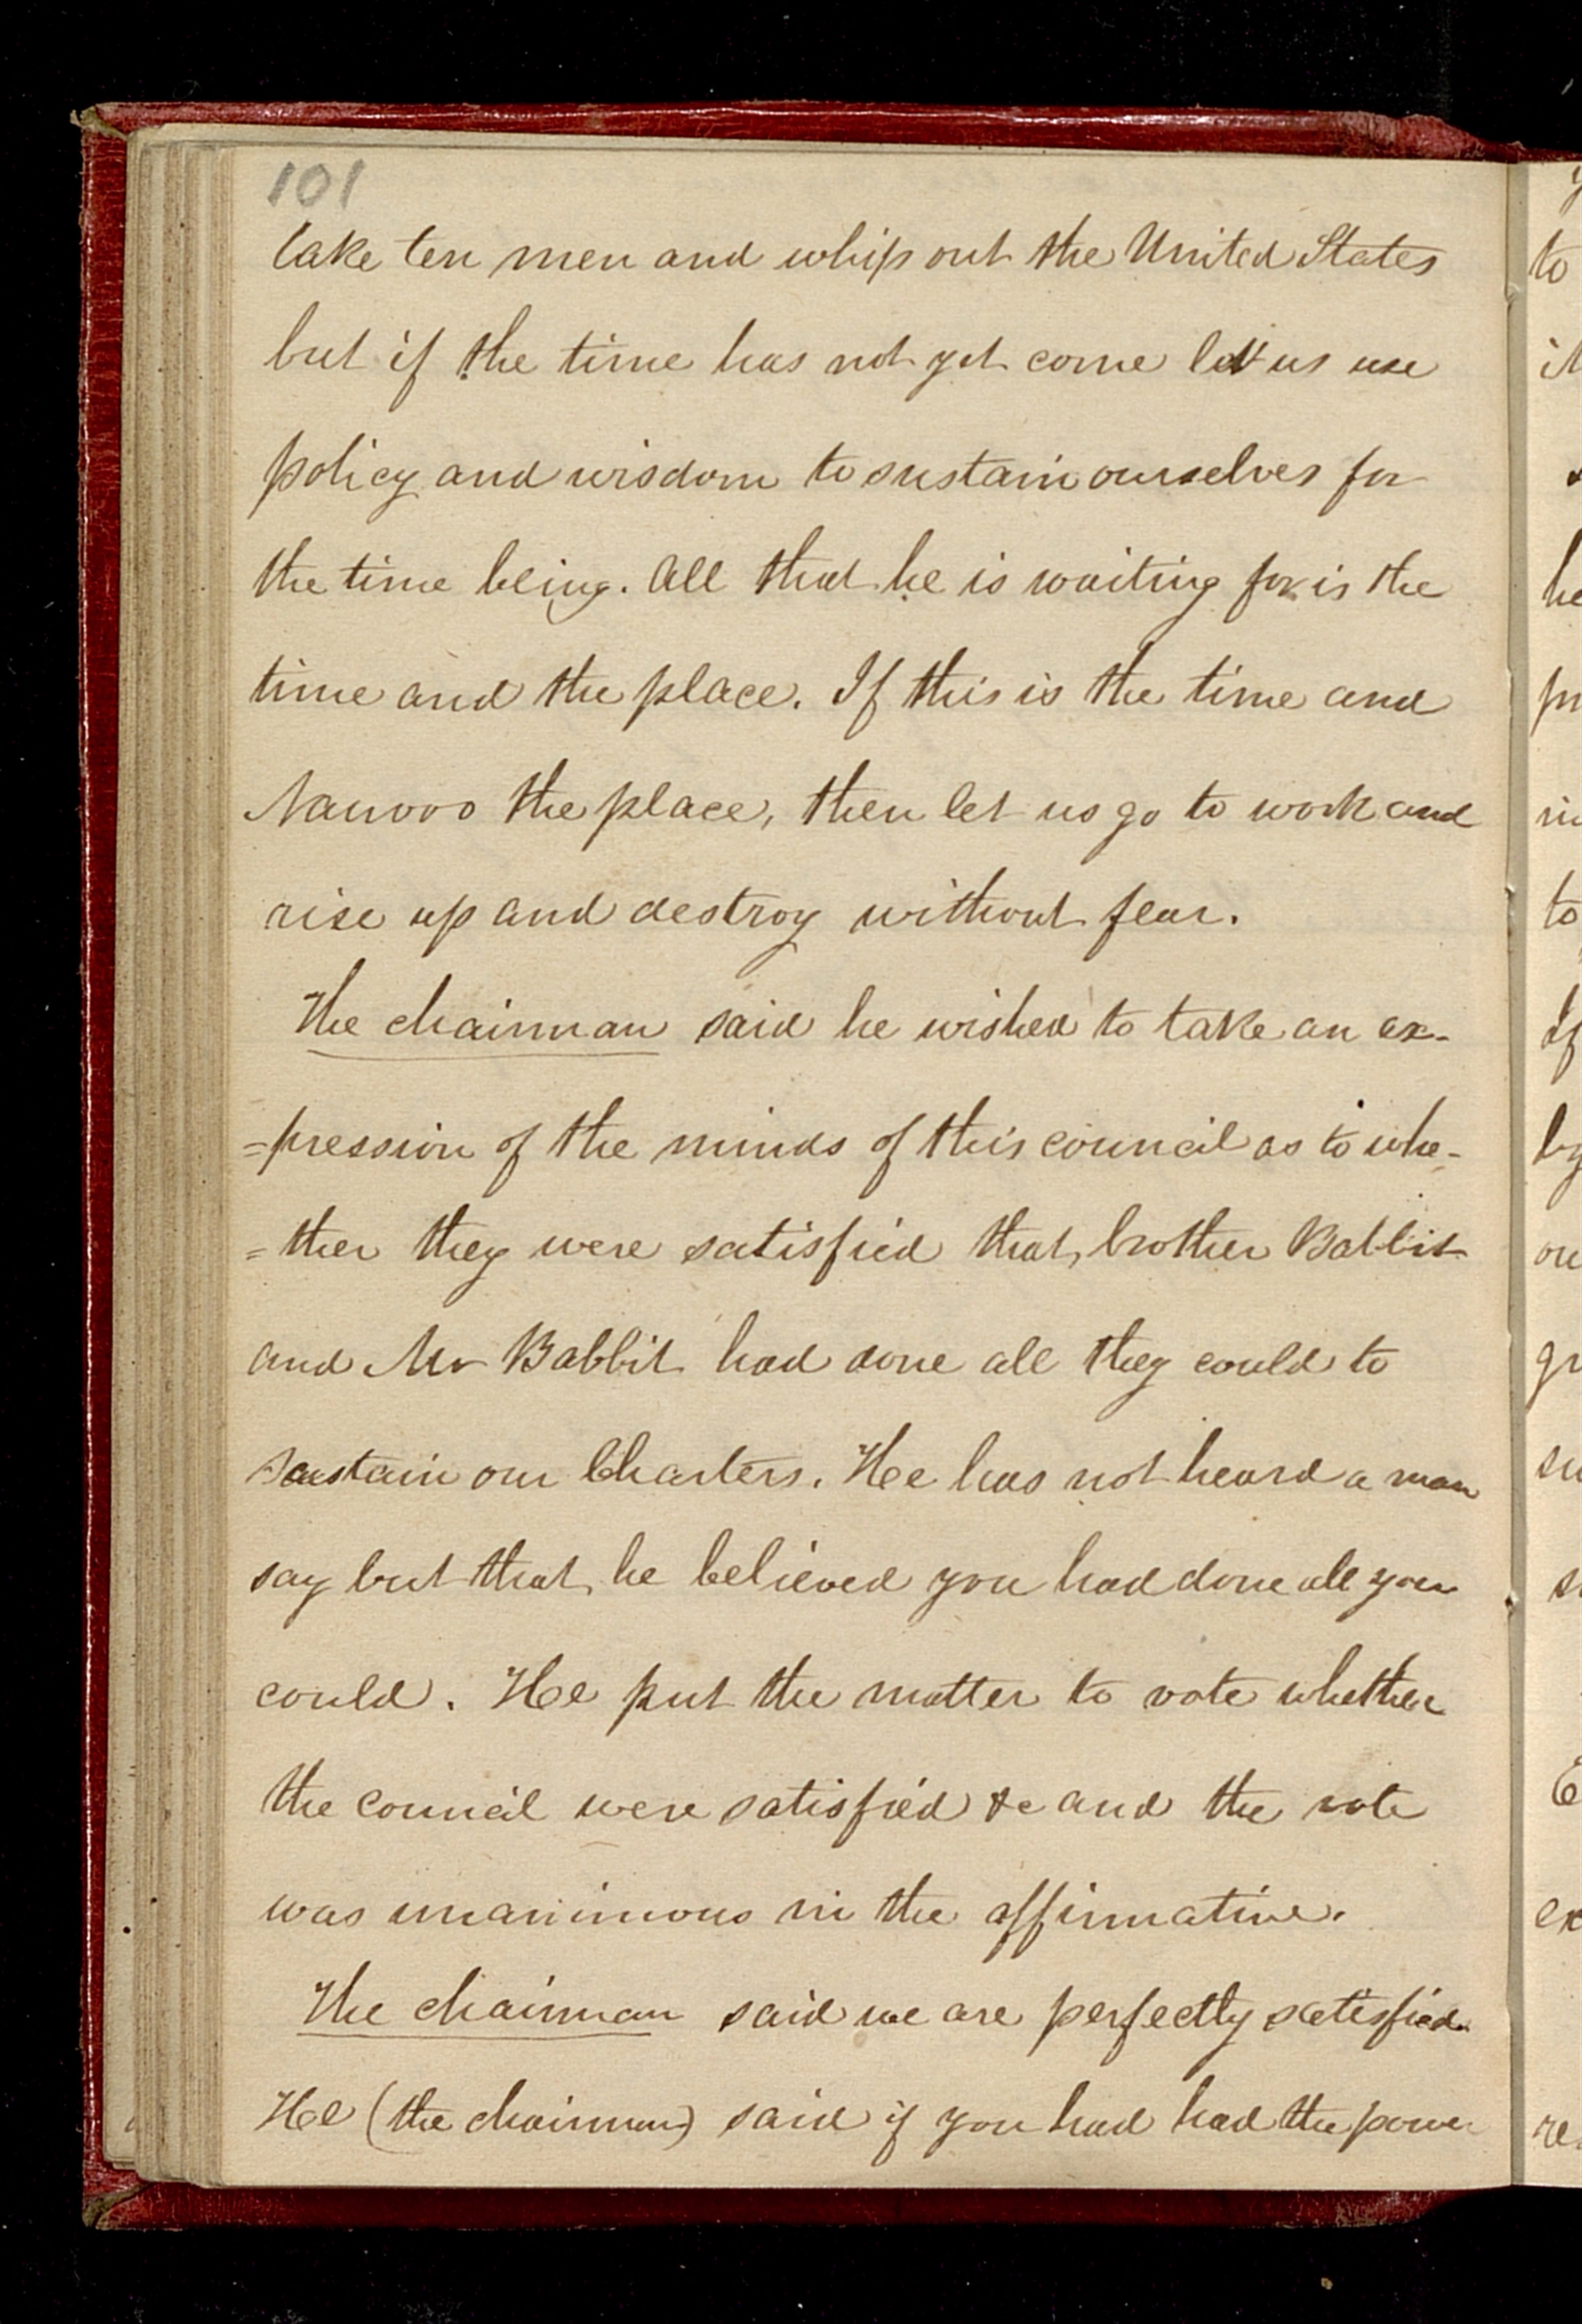 101
take ten men and whip out the United States
but if the time has not yet come let us use
policy and wisdom to sustain ourselves for
the time being. All that he is waiting for is the
time and the place. If this is the time and
Nauvoo the place, then let us go to work and
rise up and destroy without fear.
The chairman said he wished to take an ex-
=pression of the minds of this council as to whe-
=ther they were satisfied that, brother Babbit
and Mr Babbit had done all they could to
sustain our Charters. He has not heard a man
say but that he believed you had done all you
could. He put the matter to vote whether
the council were satisfied &c and the vote
was unanimous in the affirmative.
The chairman said we are perfectly satisfied.
He (the chairman) said if you had had the power
to
it
he
pr
to
If
by
ou
gr
su
ex
re